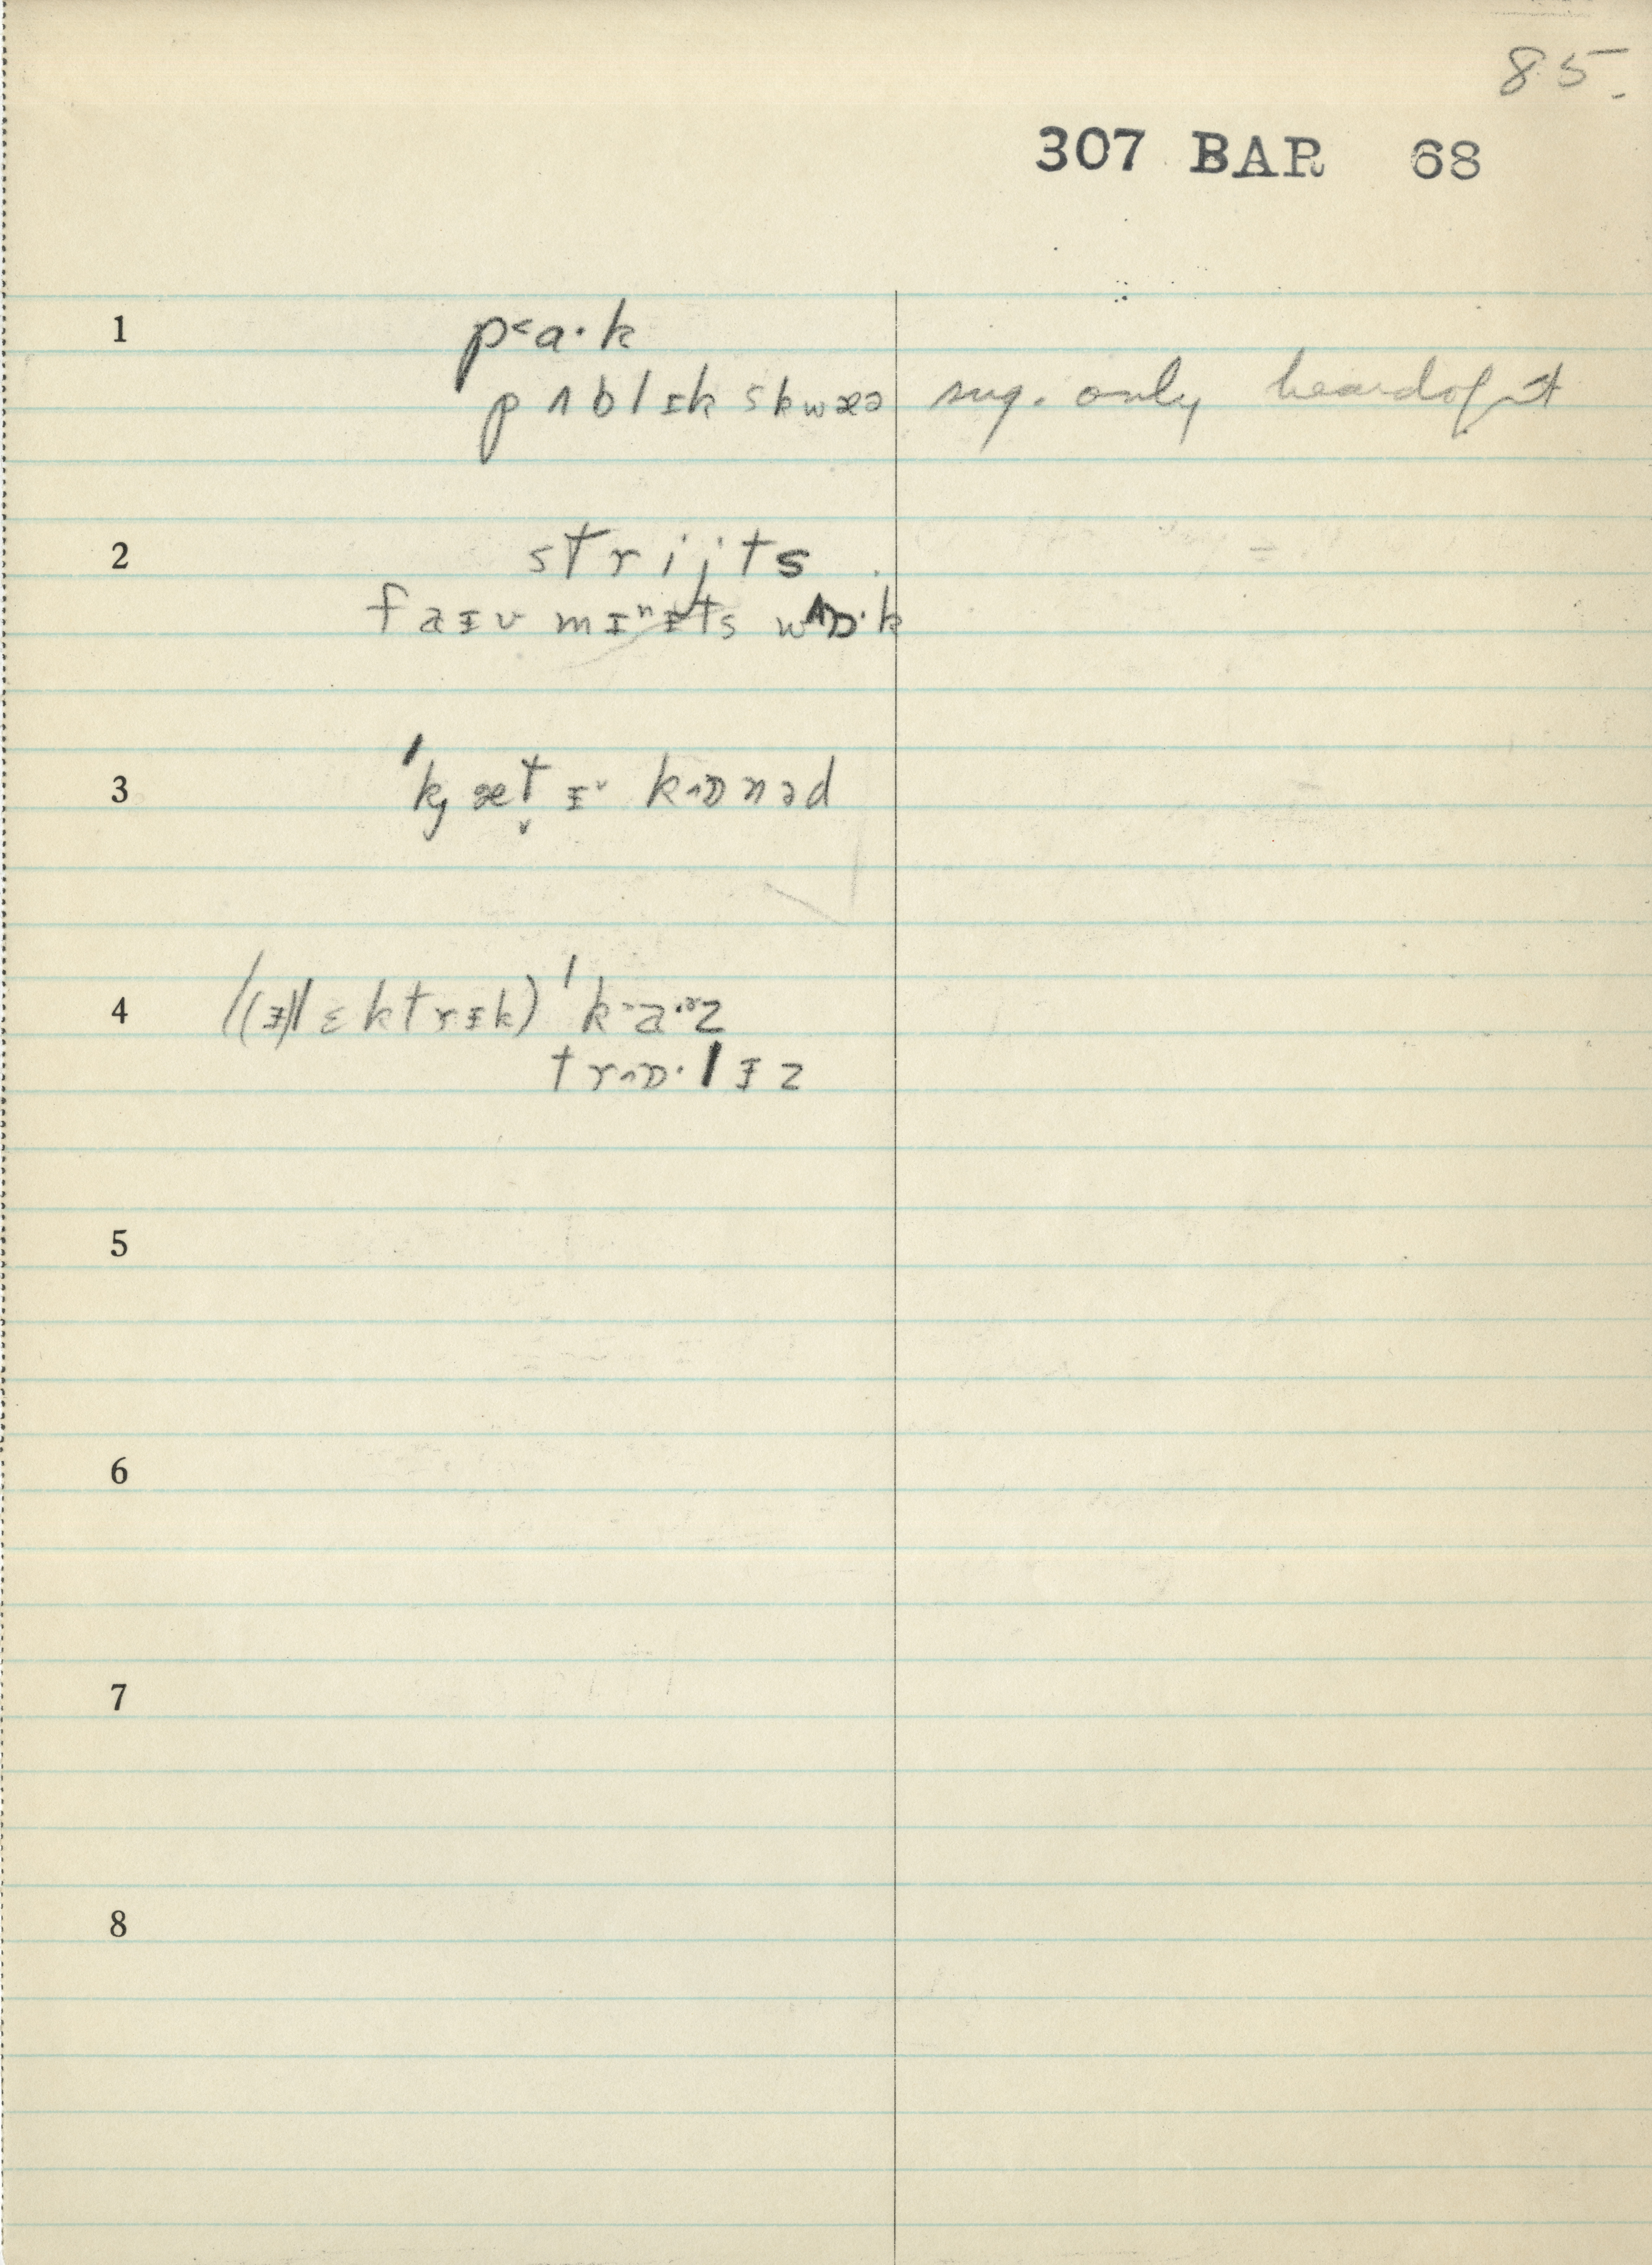 85.
307 BAR 68
1
p<a·k
pʌblɪk skwæə sug. only heard of it
2
strijts
faɪv mɪnɪts wʌɒ·k
3
ˈkj æt̬ ɪ˅ kɒnəd
4
((ɪ)lɛktrɪk) ˈka·ɚz
trɒ·lɪz
5
6
7
8